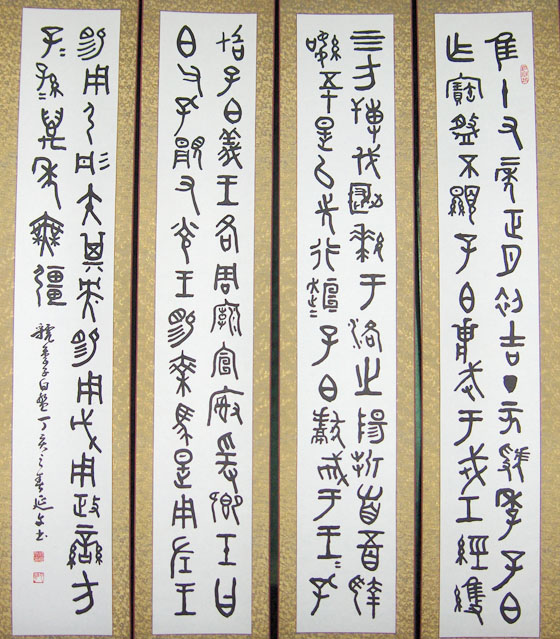 隹十又二年正月初吉丁亥虢季子白
乍寶盤不顯子白壯武于戎工經維
四方搏伐玁狁于洛之陽折首五百執
訊五十是以先行趄=子白獻馘于王=孔
加子白義王各周廟宣榭爰卿王曰
白父孔顯又光王賜乘馬是用左王
賜用弓彤矢其央賜用戉用政蠻方
子=孫=萬年無疆
虢季子白盤丁亥之春延文書